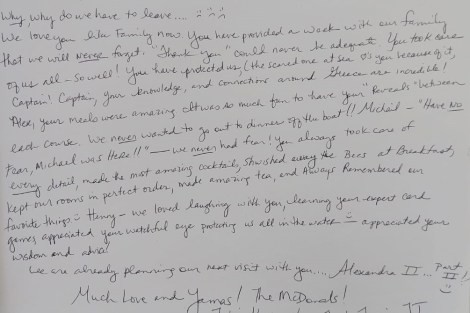 Why, why do we have to leave....
We love you like Family now. You have provided a week with our family
that we will never forget. "Thank you" could never be adequate. You took care
of us all - so well! You have protected us, (the scared one at sea is you because of it,
Captain! Captain, your knowledge, and connections around Greece are incredible!
Alex, your meals were amazing. It was so much fun to have your "Reveals" between
each course. We never wanted to go out to dinner off the boat!! Michail - "Have No
Fear, Michael was Here!!" - we never had fear! You always took care of
every detail, made the most amazing cocktail, Shushed away the Bees at Breakfast,
kept our rooms in perfect order, made amazing tea, and Always Remembered our
favorite things. Henny - we loved laughing with you, learning your expert card
games, appreciated your watchful eye protecting us all in the water - appreciated your
wisdom and advice!
We are already planning our next visit with you.... Alexandra II... Part II!
Much Love and Yamas! The McDonalds!